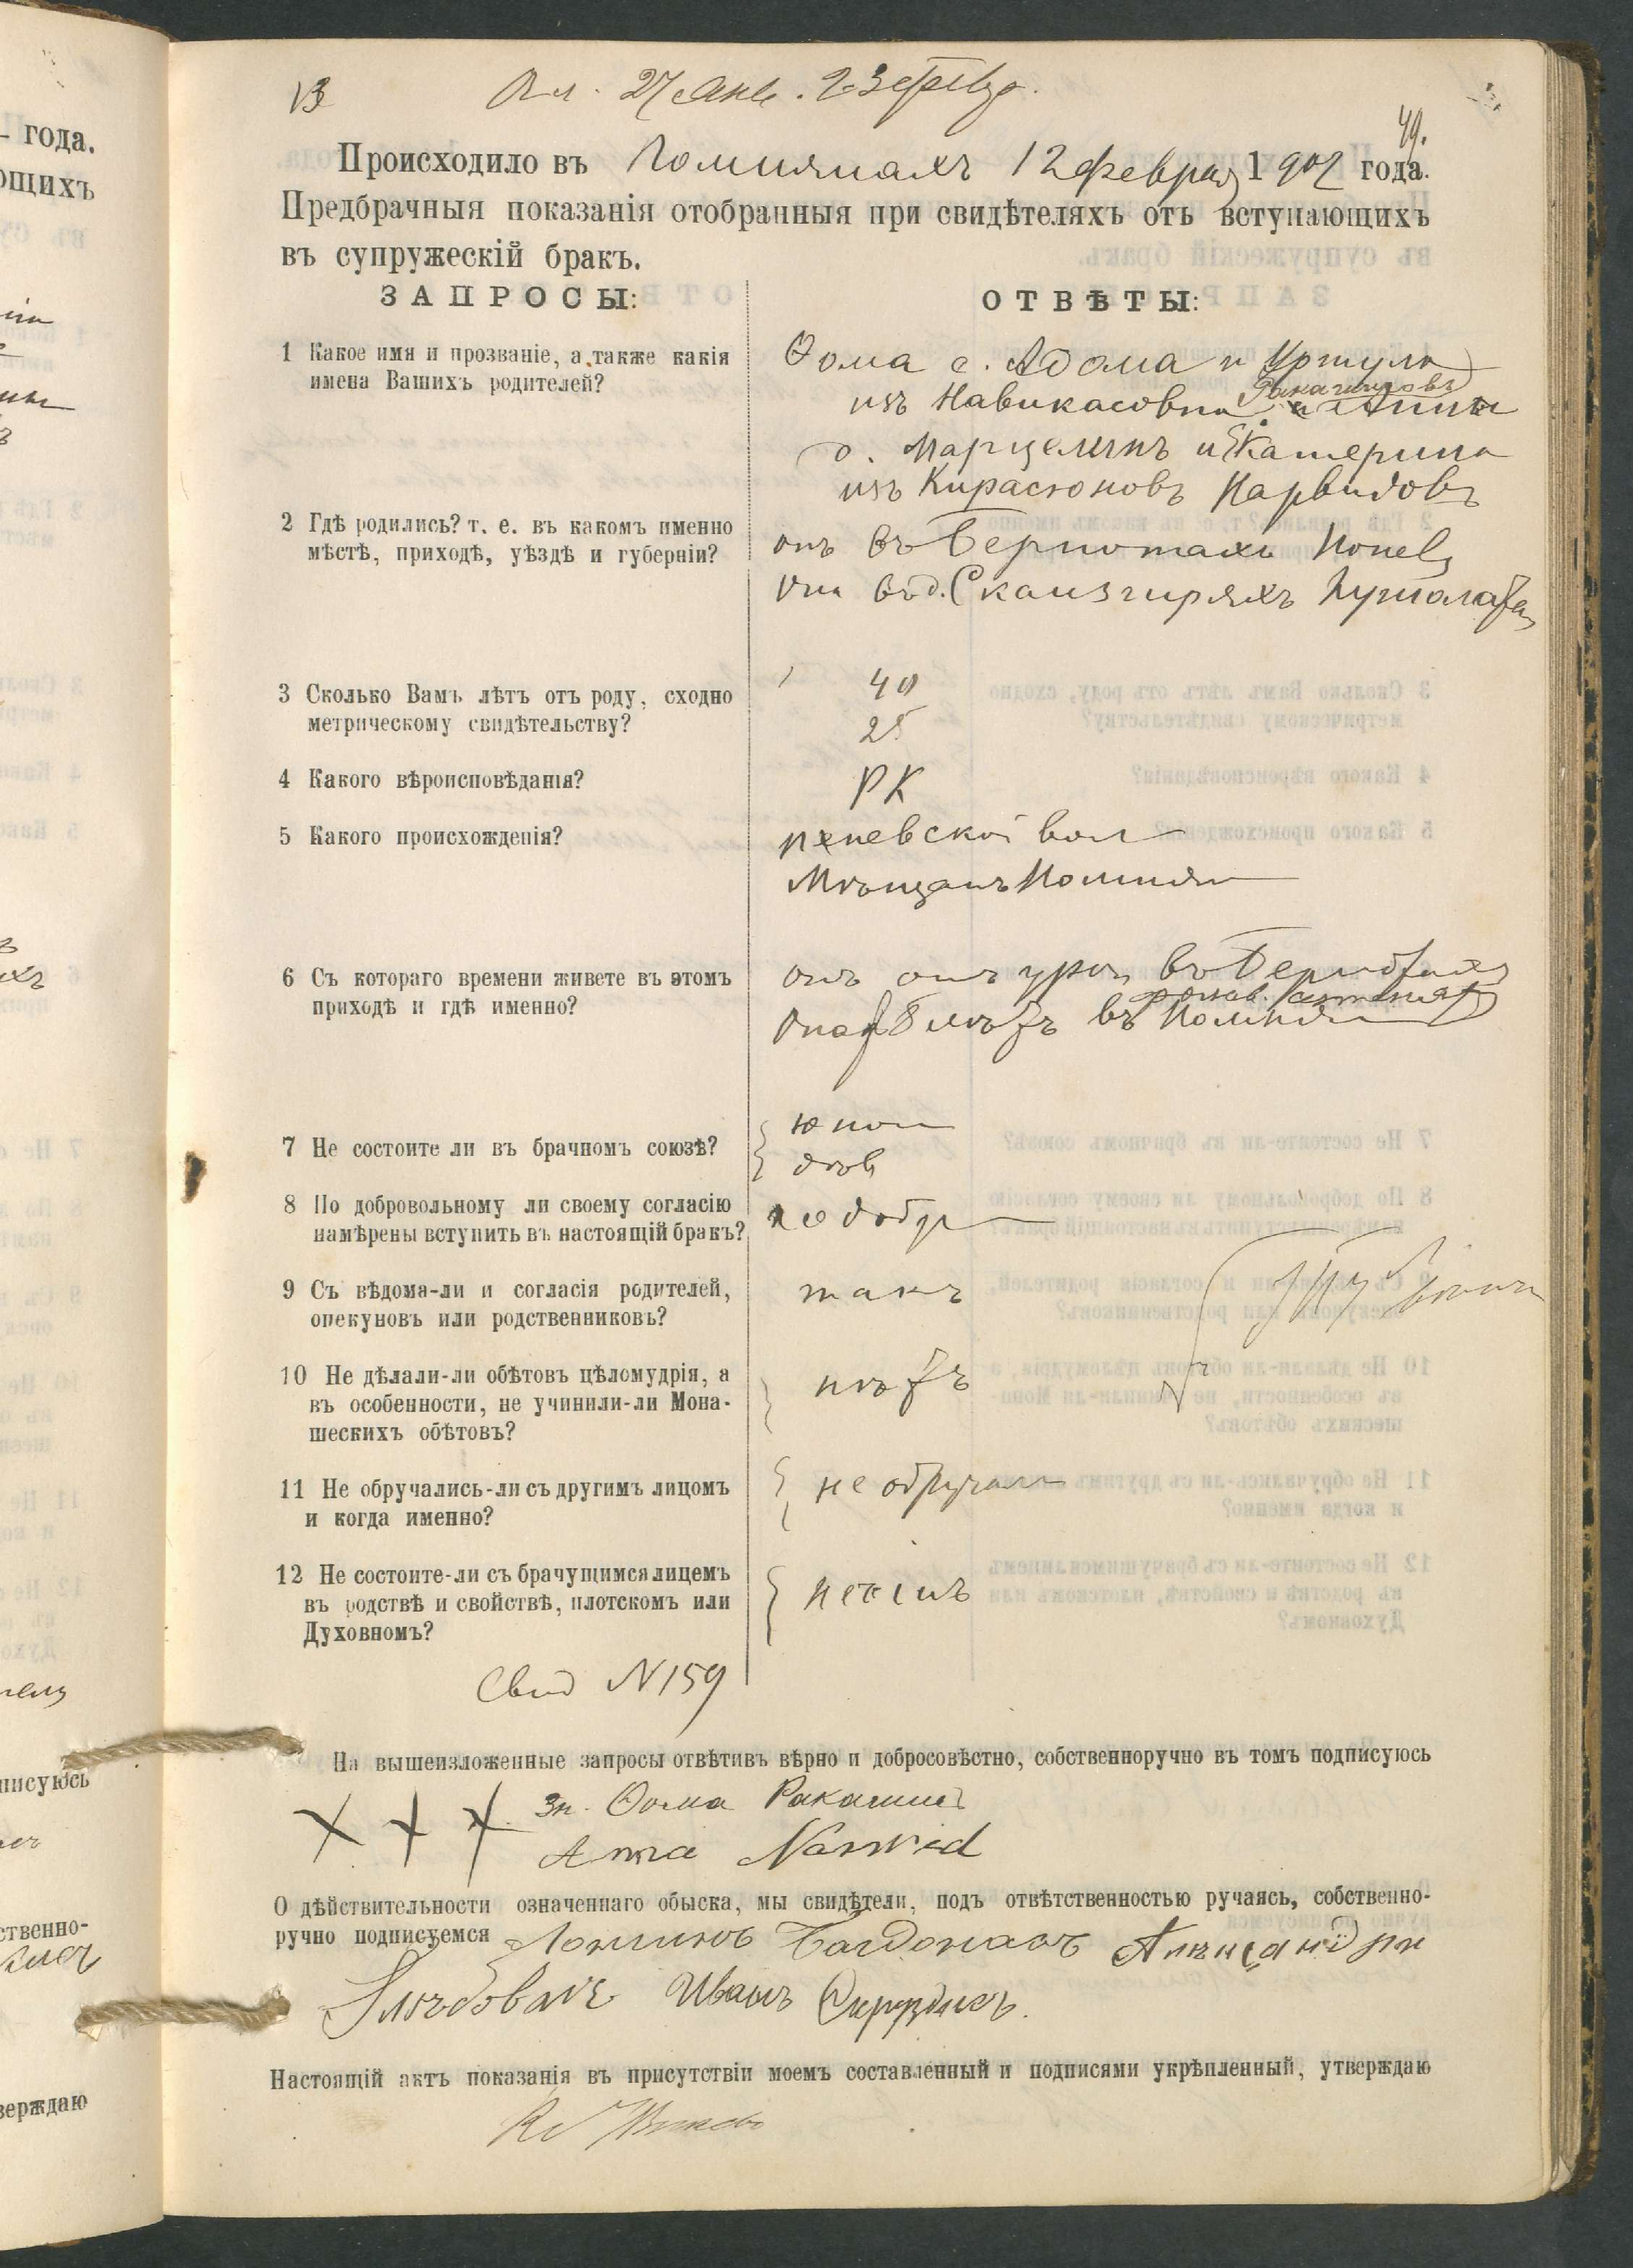 13
Ог. 27 Янв. 2 3 февр.
49.
Происходило въ Помпянахъ 12 Февраля 1902 года.
Предбрачныя показанія отобранныя при свидѣтеляхъ отъ вступающихъ
въ супружескій бракъ.
ЗАПРОСЫ:
ОТВѢТЫ:
1 Какое имя и прозваніе, а также какія
имена Вашихъ родителей?
Ѳома с. Адома и Уршули
изъ Навикасовны и Анны
д. Марцелинъ и Катерина
изъ Кирасюновъ Нарвидовъ
2 Гдѣ родились? т. е. въ какомъ именно
мѣстѣ, приходѣ, уѣздѣ и губерніи?
онъ въ Бернотахъ Попев
Она въ д. Скаизгиряхъ
3 Сколько Вамъ лѣтъ отъ роду, сходно
метрическому свидѣтельству?
40
25
4 Какого вѣроисповѣданія?
РК
5 Какого происхожденія?
попевской вол
Мѣщанъ Помпян
6 Съ котораго времени живете въ этомъ
приходѣ и гдѣ именно?
онъ отъ урож въ Бернотахъ
Она 8 лѣтъ въ Помпян
7 Не состоите ли въ брачномъ союзѣ?
юнош
дѣв
8 По добровольному ли своему согласію
намѣрены вступить въ настоящій бракъ?
по добр
9 Съ вѣдома-ли и согласія родителей,
опекуновъ или родственниковъ?
такъ
10 Не дѣлали-ли обѣтовъ цѣломудрія, а
въ особенности, не учинили-ли Мона-
шескихъ обѣтовъ?
нѣтъ
11 Не обручались-ли съ другимъ лицомъ
и когда именно?
не обручали
12 Не состоите-ли съ брачущимся лицемъ
въ родствѣ и свойствѣ, плотскомъ или
Духовномъ?
Свид N 159
На вышеизложенные запросы отвѣтивъ вѣрно и добросовѣстно, собственноручно въ томъ подписуюсь
+ + + зн. Ѳома
Anna Narwid
О дѣйствительности означеннаго обыска, мы свидѣтели, подъ отвѣтственностью ручаясь, собственно-
ручно подписуемся Лонгинъ Багдонасъ
Иванъ
Настоящій актъ показанія въ присутствіи моемъ составленный и подписями укрѣпленный, утверждаю